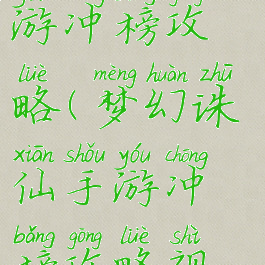 游冲榜攻
lüè mèng huàn zhū
略(梦幻诛
xiān shǒu yóu chōng
仙手游冲
bǎng gōng lüè shì
榜攻略视